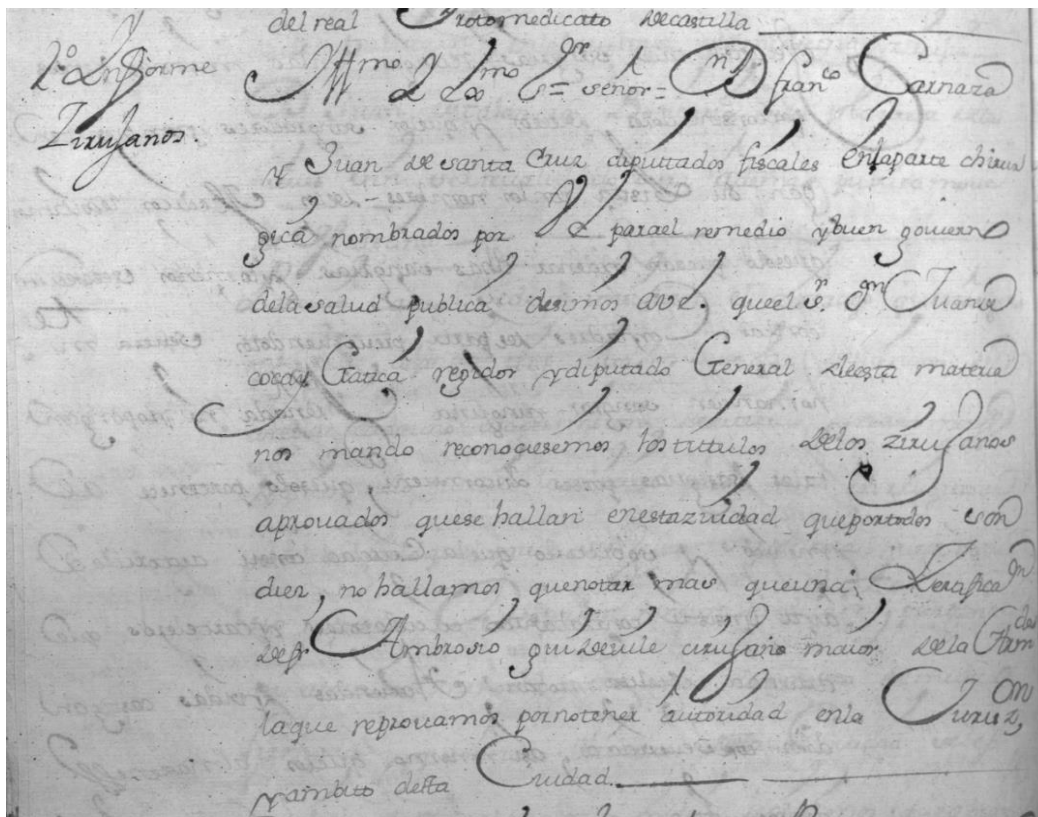 del real Protomedicato de castilla
2º Ynforme
Zirujanos.
Yllmo Sr señor = Dn Franco Carnaza
y Juan de Santa Cruz diputados fiscales enlaparte chirur
gica nombrados por VE parael remedio ybuen govierno
delasalud publica desimos aVE. queel Sr Dn Juan
coca y Gatica regidor ydiputado General deesta materia
nos mando reconoçiesemos lostitulos delos zirujanos
aprovados quese hallan enestaziudad queportodos son
diez, no hallamos quenotar mas queuna Zertificaon
deDn Ambrosio cirujano maior dela Armda
laque reprovamos pornotener autoridad enla Jurizon
yambito desta Ciudad.